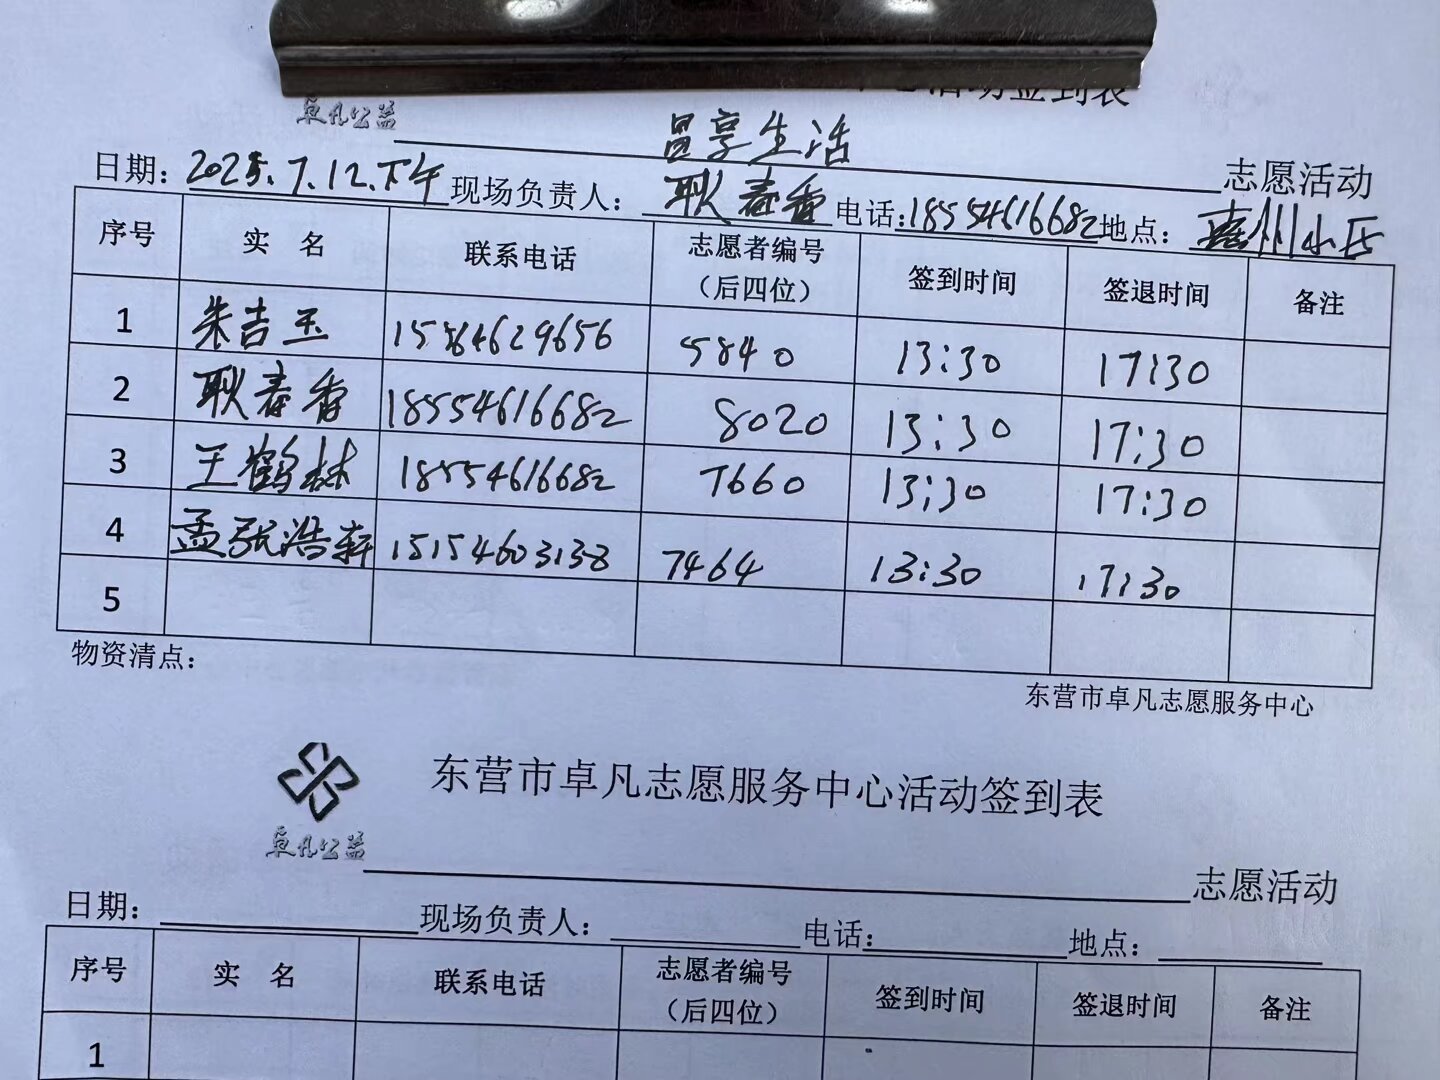 活动签到表
卓凡公益
昌享生活 志愿活动
日期：2025.7.12.下午 现场负责人： 耿春香 电话：18554616682 地点：惠州小区
序号 实 名 联系电话 志愿者编号（后四位） 签到时间 签退时间 备注
1 朱吉玉 15564629656 5840 13:30 17:30
2 耿春香 18554616682 8020 13:30 17:30
3 王鹤林 18554616682 7660 13:30 17:30
4 孟张浩轩 15154603138 7464 13:30 17:30
5
物资清点：
东营市卓凡志愿服务中心
东营市卓凡志愿服务中心活动签到表
卓凡公益
志愿活动
日期： 现场负责人： 电话： 地点：
序号 实 名 联系电话 志愿者编号（后四位） 签到时间 签退时间 备注
1